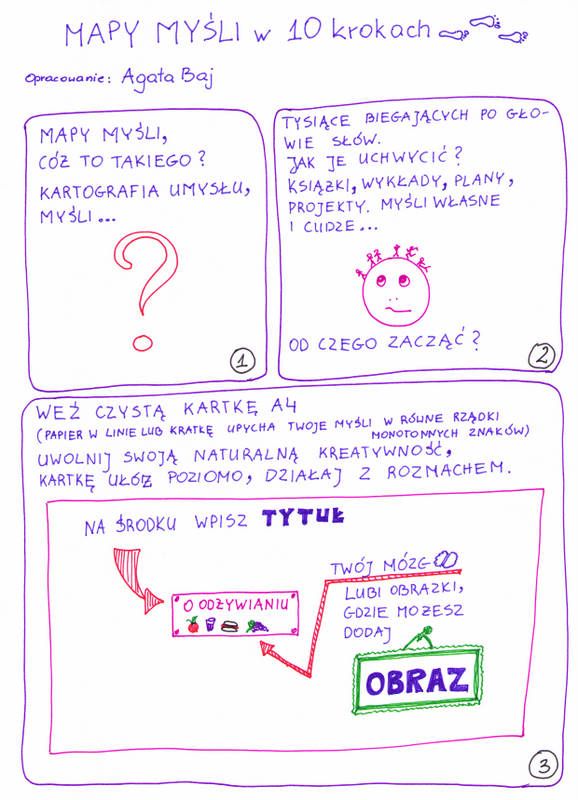 MAPY MYŚLI w 10 krokach
Opracowanie: Agata Baj
MAPY MYŚLI,
CÓŻ TO TAKIEGO?
KARTOGRAFIA UMYSŁU,
MYŚLI...
?
1
TYSIĄCE BIEGAJĄCYCH PO GŁO-
WIE SŁÓW.
JAK JE UCHWYCIĆ?
KSIĄŻKI, WYKŁADY, PLANY,
PROJEKTY. MYŚLI WŁASNE
I CUDZE...
OD CZEGO ZACZĄĆ?
2
WEŹ CZYSTĄ KARTKĘ A4
(PAPIER W LINIE LUB KRATKĘ UPYCHA TWOJE MYŚLI W RÓWNE RZĄDKI
MONOTONNYCH ZNAKÓW)
UWOLNIJ SWOJĄ NATURALNĄ KREATYWNOŚĆ,
KARTKĘ UŁÓŻ POZIOMO, DZIAŁAJ Z ROZMACHEM.
NA ŚRODKU WPISZ TYTUŁ
O ODŻYWIANIU
TWÓJ MÓZG
LUBI OBRAZKI,
GDZIE MOŻESZ
DODAJ
OBRAZ
3